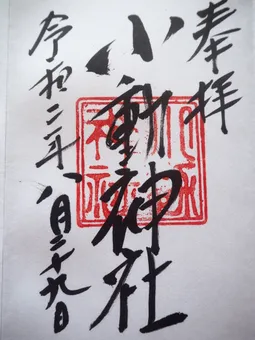 奉拝
小動神社
令和二年八月二十九日